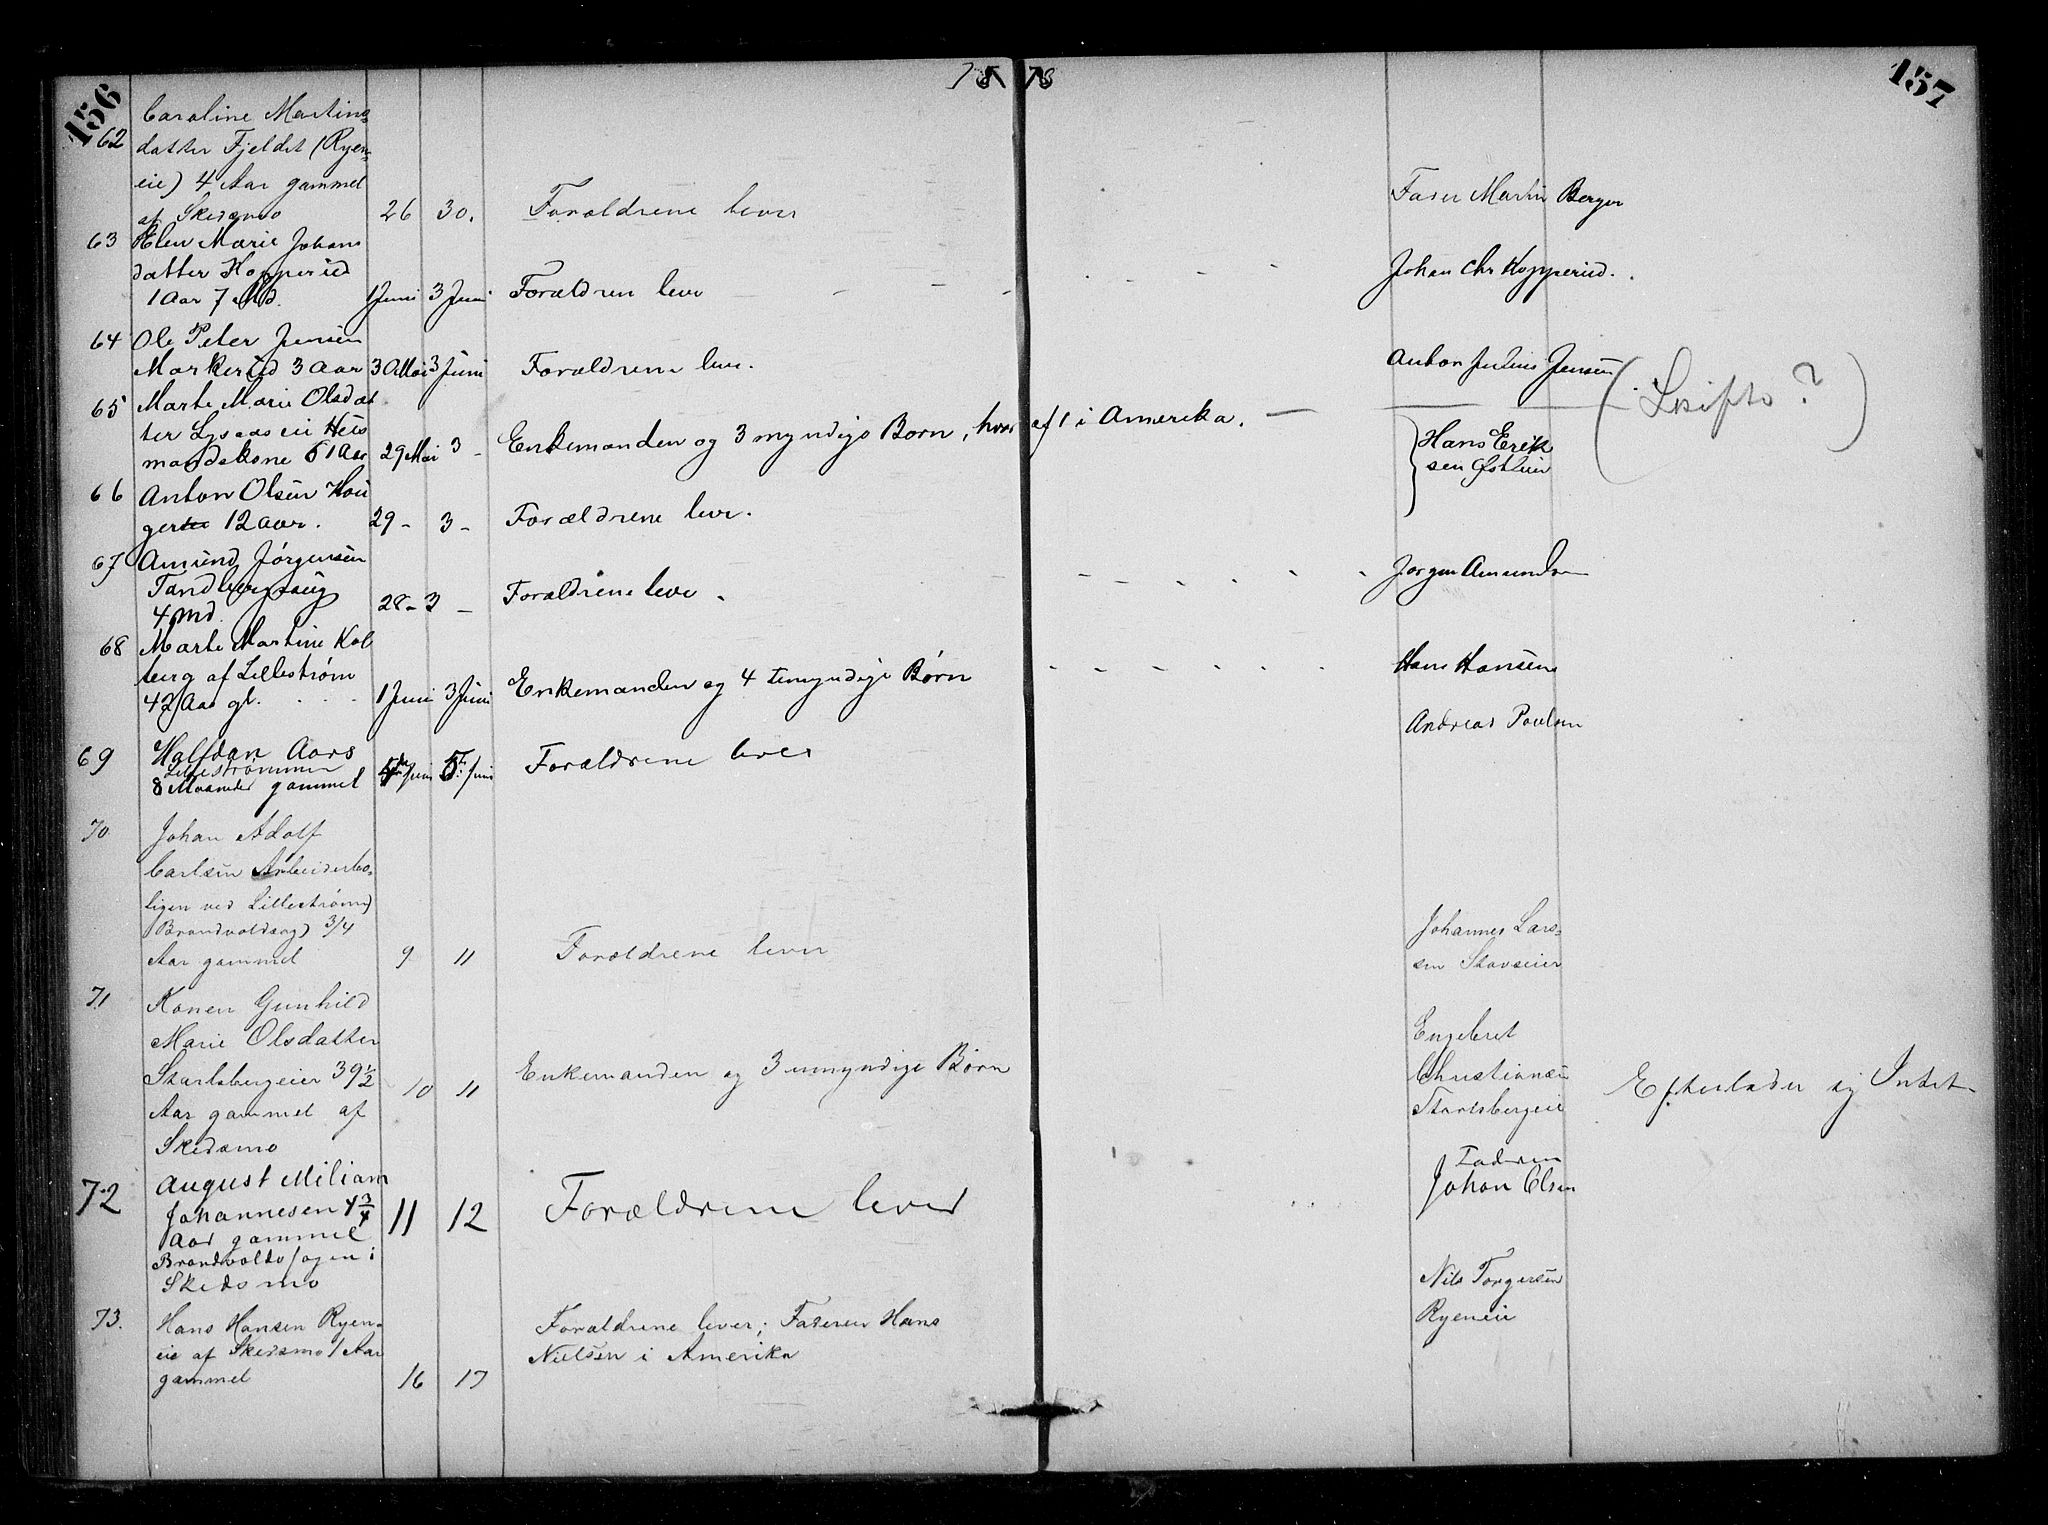 156
78 78
157
62
Caroline Martins
datter Fjeldet (Ryen
eie) 4 Aar gammel
af Skedsmo
26
30.
Forældrene lever
Fader Martin Berger
63
Elen Marie Johans
datter Kopperud
1 Aar 7 Md.
1 Juni
3 Juni
Forældren leve
Johan Chr Kopperud.
64
Ole Peter Jensen
Markerud 3 Aar
30 Mai
3 Juni
Forældrene leve.
Anton Julius Jensen
(Skifte?)
65
Marte Marie Olsdat
ter Lysaas eie Hus
mandskone 61 Aar
29 Mai
3 -
Enkemanden og 3 myndige Børn, hvoraf 1 i Amerika.
Hans Erik
sen Østeie
66
Anton Olsen Hou
ger 12 Aar.
29 -
3 -
Forældrene leve.
67
Amund Jørgensen
4 Md.
28 -
3 -
Forældrene leve.
Jørgen Amundsen
68
Marte Martine Kol
berg af Lillestrøm
42 Aar gl.
1 Juni
3 Juni
Enkemanden og 4 umyndige Børn
Hans Hansen
69
Halfdan Aars
Lillestrømmen
8 Maaneder gammel
Juni
5 Juni
Forældrene lever
Andreas Poulsen
70
Johan Adolf
Carlsen Arbeiderbo-
ligen ved Lillestrøm)
Brandvoldsog) 3/4
Aar gammel
9
11
Forældrene lever
Johannes Lars-
sen Stavseier
71
Konen Gunhild
Marie Olsdatter
Starlsbergeier 39 1/2
Aar gammel af
Skedsmo
10
11
Enkemanden og 3 umyndige Børn
Engebret
Christiansen
Starlsbergeie
Efterlader sig Intet
72
August Miliam
Johannesen 4 3/4
Aar gammel
Brandvoldsogen i
Skedsmo
11
12
Forældrene lever
Faderen
Johan Olsen
73.
Hans Hansen Ryen-
eie af Skedsmo 1 Aar
gammel
16
17
Forældrene lever; Faderen Hans
Nielsen i Amerika
Nils Torgersen
Ryeneie